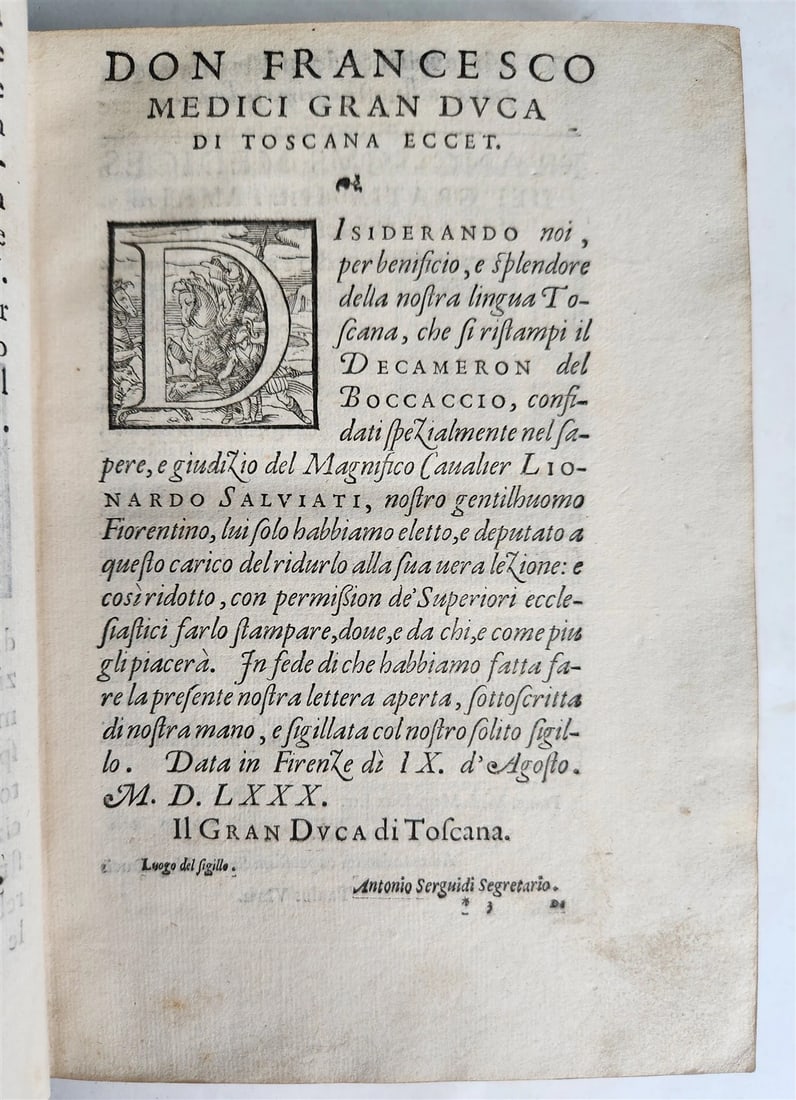 DON FRANCESCO
MEDICI GRAN DVCA
DI TOSCANA ECCET.
DISIDERANDO noi,
per benificio, e ſplendore
della noſtra lingua To-
ſcana, che ſi riſtampi il
DECAMERON del
BOCCACCIO, confi-
dati ſpezialmente nel ſa-
pere, e giudizio del Magnifico Caualier LIO-
NARDO SALVIATI, noſtro gentilhuomo
Fiorentino, lui ſolo habbiamo eletto, e deputato a
queſto carico del ridurlo alla ſua uera lezione: e
così ridotto, con permißion de' Superiori eccle-
ſiaſtici farlo ſtampare, doue, e da chi, e come piu
gli piacerà. In fede di che habbiamo fatta fa-
re la preſente noſtra lettera aperta, ſottoſcritta
di noſtra mano, e ſigillata col noſtro ſolito ſigil-
lo. Data in Firenze dì IX. d'Agoſto.
M. D. LXXX.
Il GRAN DVCA di Toſcana.
Luogo del ſigillo.
Antonio Serguidi Segretario.
* 3 Di